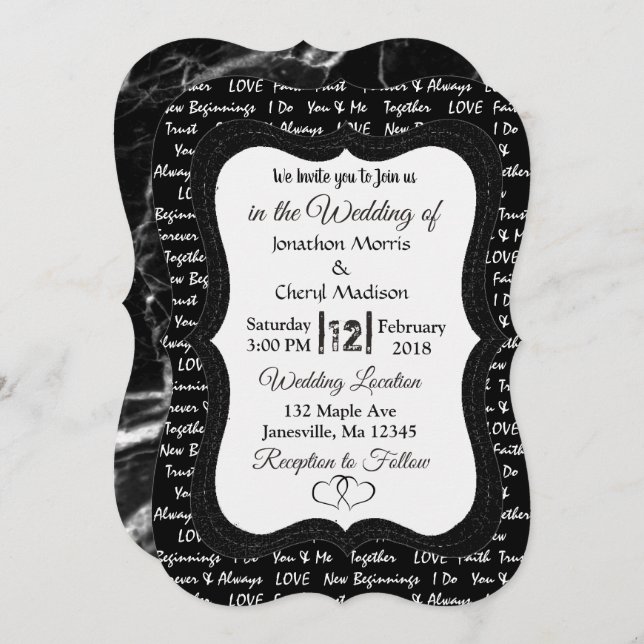 ever LOVE Faith Trust Forever & Always LOVE
New Beginnings I Do You & Me Together LOVE Faith
Trust Always LOVE New B
You
Always
LOVE
Beginn
Forever
Together
New Beg
Trust
You
We Invite you to Join us
in the Wedding of
Jonathon Morris
&
Cheryl Madison
Saturday 12 February
3:00 PM 2018
Wedding Location
132 Maple Ave
Janesville, Ma 12345
Reception to Follow
Beginnings I Do You & Me Together LOVE Faith Trus
orever & Always LOVE New Beginnings I Do You &
LOVE Faith Trust Forever & Always LOVE